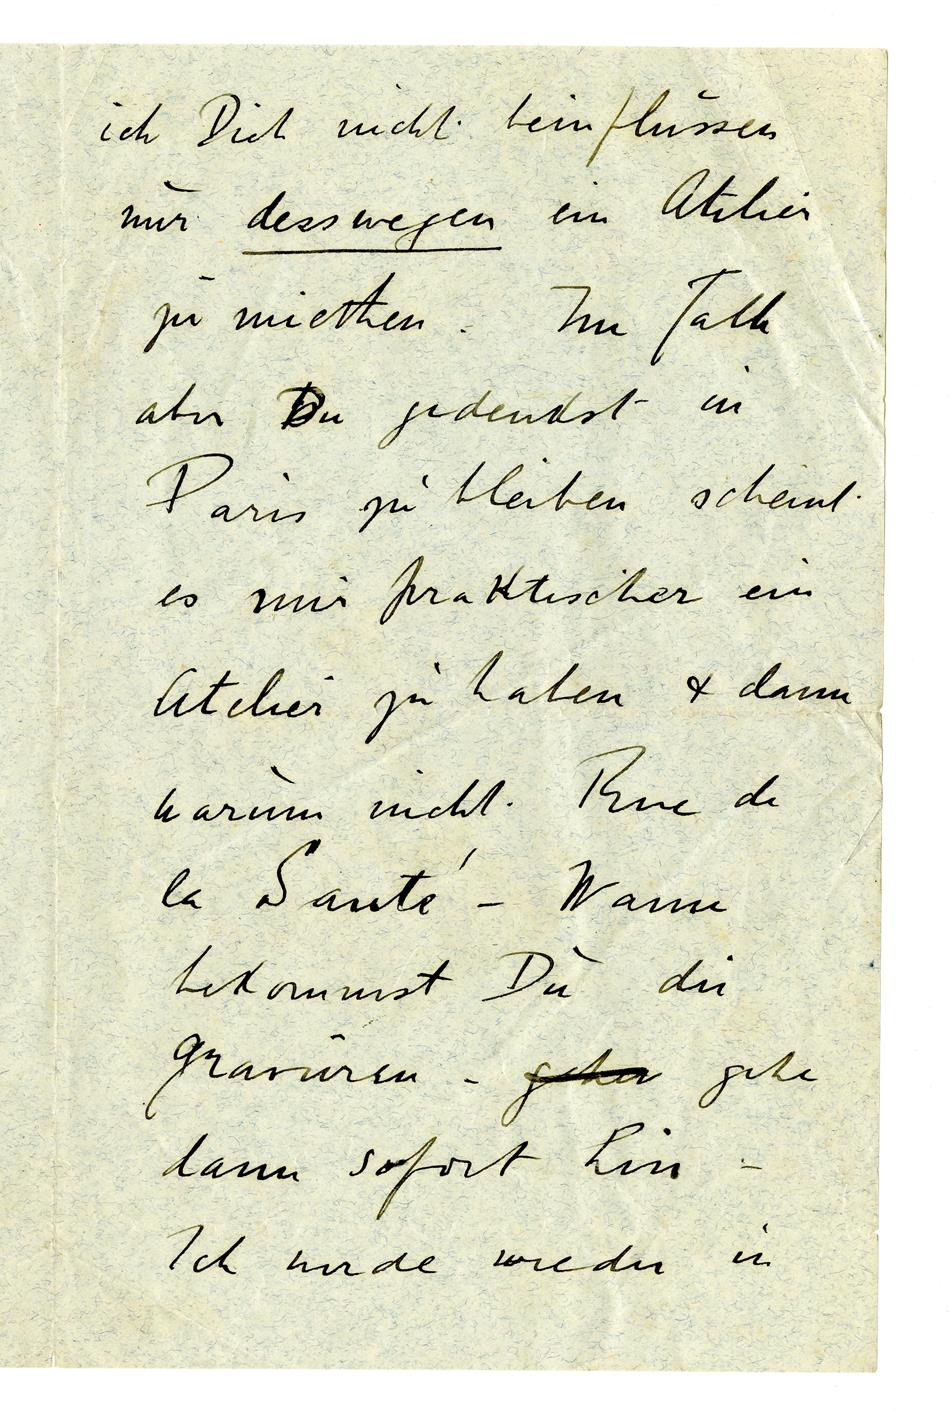 ich Dich nicht beinflussen
nur desswegen ein Atelier
zu miethen. Im Falle
aber Du gedenkst in
Paris zu bleiben scheint
es mir praktischer ein
Atelier zu haben & dann
warum nicht. Rue de
la Santé – Wann
bekommst Du die
Gravüren – gehen gehe
dann sofort hin –
Ich werde wieder in